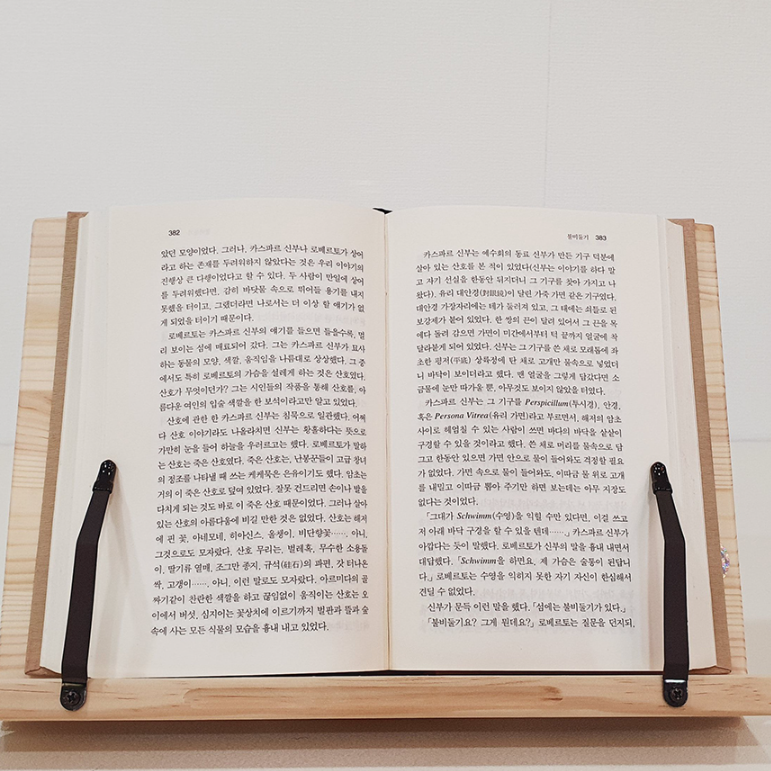 382
았던 모양이었다. 그러나, 카스파르 신부나 로베르토가 상어
라고 하는 존재를 두려워하지 않았다는 것은 우리 이야기의
진행상 큰 다행이었다고 할 수 있다. 두 사람이 만일에 상어
를 두려워했다면, 감히 바닷물 속으로 뛰어들 용기를 내지
못했을 터이고, 그랬더라면 나로서는 더 이상 할 얘기가 없
게 되었을 터이기 때문이다.
로베르토는 카스파르 신부의 얘기를 들으면 들을수록, 멀
리 보이는 섬에 매료되어 갔다. 그는 카스파르 신부가 묘사
하는 동물의 모양, 색깔, 움직임을 나름대로 상상했다. 그 중
에서도 특히 로베르토의 가슴을 설레게 하는 것은 산호였다.
산호가 무엇이던가? 그는 시인들의 작품을 통해 산호를, 아
름다운 여인의 입술 색깔을 한 보석이라고만 알고 있었다.
산호에 관한 한 카스파르 신부는 침묵으로 일관했다. 어쩌
다 산호 이야기라도 나올라치면 신부는 황홀하다는 뜻으로
가만히 눈을 들어 하늘을 우러르고는 했다. 로베르토가 말하
는 산호는 죽은 산호였다. 죽은 산호는, 난봉꾼들이 고급 창녀
의 정조를 나타낼 때 쓰는 케케묵은 은유이기도 했다. 암초는
거의 이 죽은 산호로 덮여 있었다. 잘못 건드리면 손이나 발을
다치게 되는 것도 바로 이 죽은 산호 때문이었다. 그러나 살아
있는 산호의 아름다움에 비길 만한 것은 없었다. 산호는 해저
에 핀 꽃, 아네모네, 히아신스, 올생이, 비단향꽃……, 아니,
그것으로도 모자랐다. 산호 무리는, 벌레혹, 무수한 소용돌
이, 딸기류 열매, 조그만 종지, 규석(硅石)의 파편, 갓 터나온
싹, 고갱이……, 아니, 이런 말로도 모자랐다. 아르미다의 골
짜기같이 찬란한 색깔을 하고 끊임없이 움직이는 산호는 오
이에서 버섯, 심지어는 꽃상치에 이르기까지 벌판과 뜰과 숲
속에 사는 모든 식물의 모습을 흉내 내고 있었다.
불비둘기 383
카스파르 신부는 예수회의 동료 신부가 만든 기구 덕분에
살아 있는 산호를 본 적이 있었다(신부는 이야기를 하다 말
고 자기 선실을 한동안 뒤지더니 그 기구를 찾아 가지고 나
왔다). 유리 대안경(對眼鏡)이 달린 가죽 가면 같은 기구였다.
대안경 가장자리에는 테가 둘러져 있고, 그 테에는 쇠틀로 된
보강제가 붙어 있었다. 한 쌍의 끈이 달려 있어서 그 끈을 목
에다 돌려 감으면 가면이 미간에서부터 턱 끝까지 얼굴에 착
달라붙게 되어 있었다. 신부는 그 기구를 쓴 채로 모래톱에 좌
초한 평저(平底) 상륙정에 탄 채로 고개만 물속으로 넣었더
니 바닥이 보이더라고 했다. 맨 얼굴을 그렇게 담갔다면 소
금물에 눈만 따가울 뿐, 아무것도 보이지 않았을 터였다.
카스파르 신부는 그 기구를 Perspicillum(투시경), 안경,
혹은 Persona Vitrea(유리 가면)라고 부르면서, 해저의 암초
사이로 헤엄칠 수 있는 사람이 쓰면 바다의 바닥을 샅샅이
구경할 수 있을 것이라고 했다. 쓴 채로 머리를 물속으로 담
그고 한동안 있으면 가면 안으로 물이 들어와도 걱정할 필요
가 없었다. 가면 속으로 물이 들어와도, 이따금 물 위로 고개
를 내밀고 이따금 뽑아 주기만 하면 보는데는 아무 지장도
없다는 것이었다.
「그대가 Schwimm(수영)을 익힐 수만 있다면, 이걸 쓰고
저 아래 바닥 구경을 할 수 있을 텐데……」 카스파르 신부가
아깝다는 듯이 말했다. 로베르토가 신부의 말을 흉내 내면서
대답했다. 「Schwimm을 하면요, 제 가슴은 술통이 된답니
다.」 로베르토는 수영을 익히지 못한 자기 자신이 한심해서
견딜 수 없었다.
신부가 문득 이런 말을 했다. 「섬에는 불비둘기가 있다.」
「불비둘기요? 그게 뭔데요?」 로베르토는 질문을 던지되,